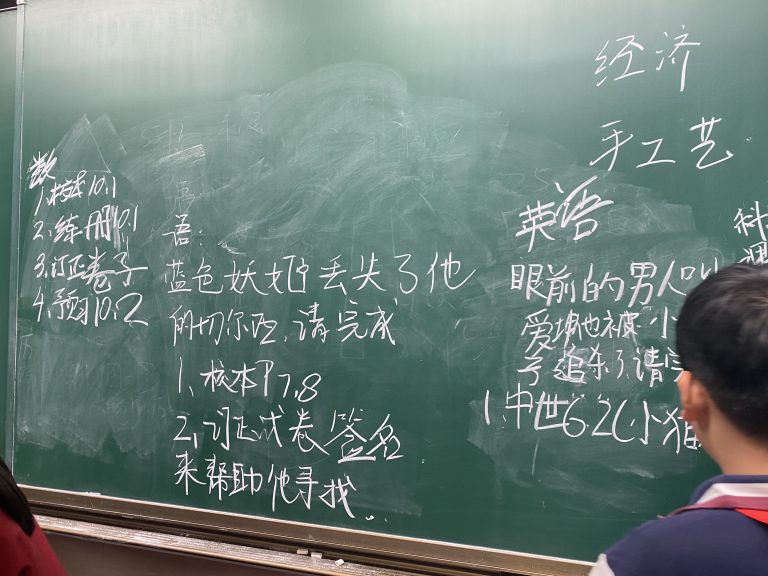 数
1.校本10.1
2.练册10.1
3.订正卷子
4.预习10.2
语:
蓝色妖姬丢失了他
的切尔西,请完成
1、校本P7,8
2、订正试卷签名
来帮助他寻找...
经济
手工艺
英语
眼前的男人叫
爱坤他被一小
追杀了,请完
1.中世6.2(小猫
科